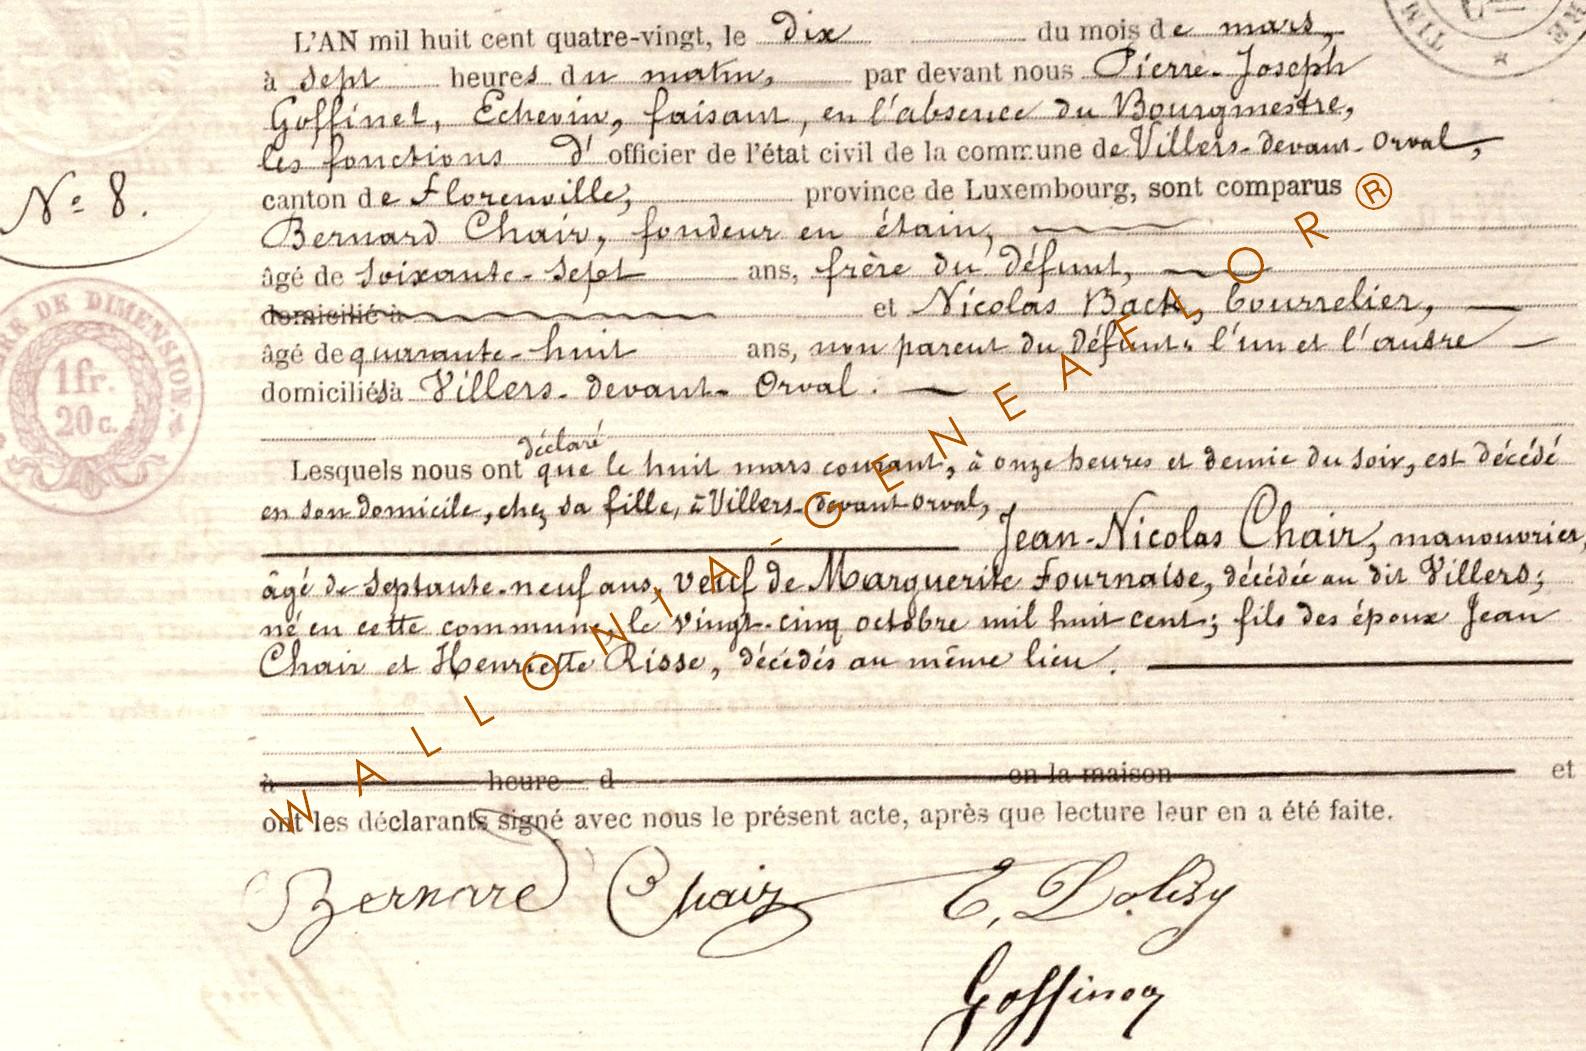 L'AN mil huit cent quatre-vingt, le dix du mois de mars,
à sept heures du matin, par devant nous Pierre-Joseph
Goffinet, Echevin, faisant, en l'absence du Bourgmestre,
les fonctions d'officier de l'état civil de la commune de Villers-devant-Orval,
canton de Florenville, province de Luxembourg, sont comparus
Nº 8.
Bernard Chair, fondeur en étain,
âgé de soixante-sept ans, frère du défunt,
domicilié à et Nicolas Back, bourrelier,
âgé de quarante-huit ans, non parent du défunt. l'un et l'autre
domiciliés à Villers-devant-Orval.
déclaré
Lesquels nous ont que le huit mars courant, à onze heures et demie du soir, est décédé
en son domicile, chez sa fille, à Villers-devant Orval,
Jean-Nicolas Chair, manouvrier,
âgé de septante-neuf ans, veuf de Marguerite Fournaise, décédée au dit Villers;
né en cette commune, le vingt-cinq octobre mil huit cent; fils des époux Jean
Chair et Henriette Risse, décédés au même lieu.
à heure d en la maison et
ont les déclarants signé avec nous le présent acte, après que lecture leur en a été faite.
Bernard Chair
Goffinet
DE DIMENSION
1fr.
20c.
TIM
RE
WALLONIA-GENEAFLOR®